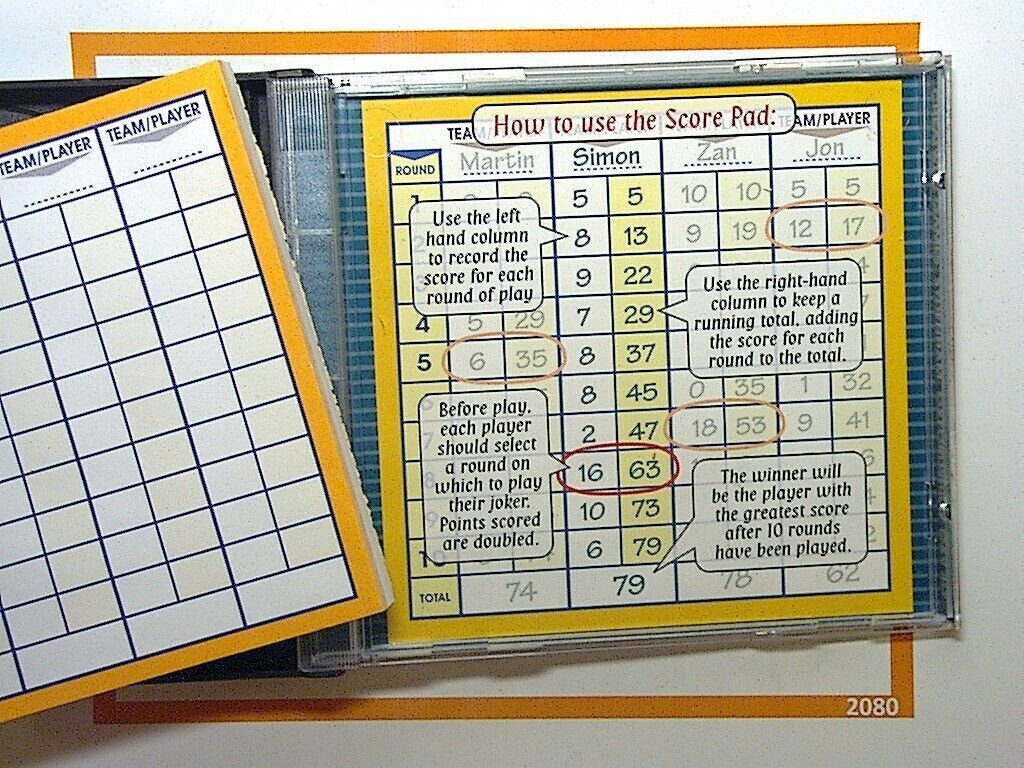 TEAM/PLAYER TEAM/PLAYER
How to use the Score Pad:
TEAM/PLAYER
ROUND Martin Simon Zan Jon
5 5 10 10 5 5
8 13 9 19 12 17
9 22
4 5 29 7 29
5 6 35 8 37
8 45 0 35 1 32
2 47 18 53 9 41
16 63
10 73
10 6 79
TOTAL 74 79 78 62
Use the left
hand column
to record the
score for each
round of play
Use the right-hand
column to keep a
running total, adding
the score for each
round to the total.
Before play,
each player
should select
a round on
which to play
their joker.
Points scored
are doubled.
The winner will
be the player with
the greatest score
after 10 rounds
have been played.
2080